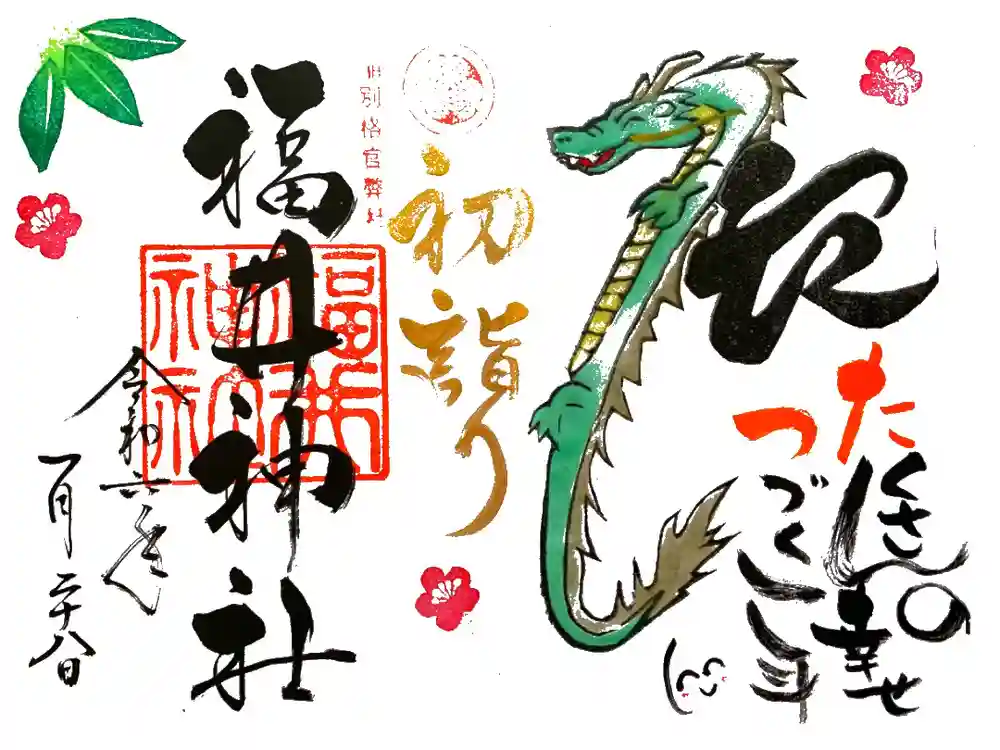 たくさんの幸せ
つづくいい年
初詣り
旧別格官幣社
福井神社
令和六年
一月二十八日